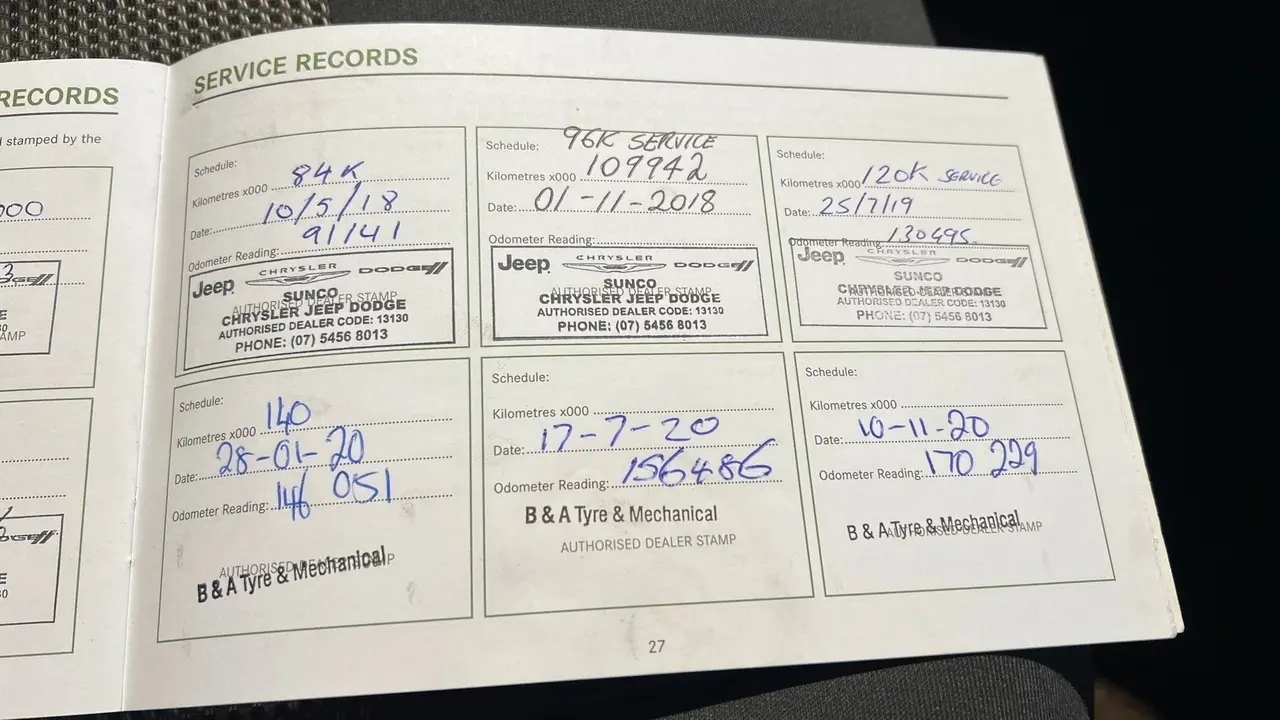 RECORDS
stamped by the
SERVICE RECORDS
Schedule:
Kilometres x000 84K
Date: 10/5/18
Odometer Reading: 91141
Jeep CHRYSLER DODGE
AUTHORISED DEALER STAMP
SUNCO
CHRYSLER JEEP DODGE
AUTHORISED DEALER CODE: 13130
PHONE: (07) 5456 8013
Schedule: 96K SERVICE
Kilometres x000 109942
Date: 01-11-2018
Odometer Reading:
Jeep CHRYSLER DODGE
AUTHORISED DEALER STAMP
SUNCO
CHRYSLER JEEP DODGE
AUTHORISED DEALER CODE: 13130
PHONE: (07) 5456 8013
Schedule:
Kilometres x000 120K SERVICE
Date: 25/7/19
Odometer Reading: 130495
Jeep CHRYSLER DODGE
SUNCO
CHRYSLER JEEP DODGE
AUTHORISED DEALER CODE: 13130
PHONE: (07) 5456 8013
Schedule:
Kilometres x000 140
Date: 28-01-20
Odometer Reading: 146 051
AUTHORISED DEALER STAMP
B & A Tyre & Mechanical
Schedule:
Kilometres x000
Date: 17-7-20
Odometer Reading: 156486
B & A Tyre & Mechanical
AUTHORISED DEALER STAMP
Schedule:
Kilometres x000
Date: 10-11-20
Odometer Reading: 170 229
B & A Tyre & Mechanical
AUTHORISED DEALER STAMP
27